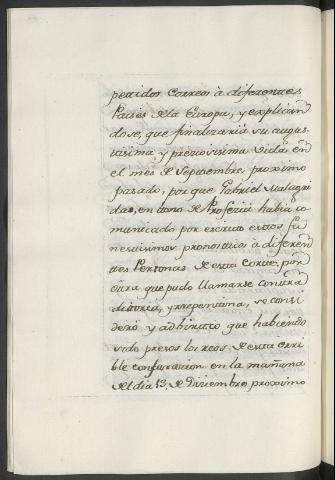 petidos Correos à diferentes
Paises de la Europa, y explican
dose, que finalizaria su augus
tisima y preciosissima vida en
el mes de Septiembre proximo
pasado, por que Gabriel Malagri
das, en tono de Profecia habia co
municado por escrito estos fu
nestisimos pronosticos à diferen
tes Personas de esta Corte; por
que pudo llamarse contra
dictoria, y repentina, se consi
deró y advirtio que habiendo
sido presos los reos de esta orri
ble conjuracion en la mañana
del dia 13, de Diciembre proximo